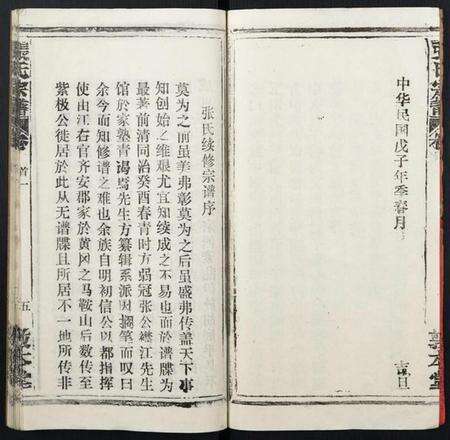 中华民国戊子年季春月
吉旦
张氏续修宗谱序
莫为之前虽美弗彰莫为之后虽盛弗传盖天下事
知创始之维艰尤宜知续成之不易也而于谱牒为
最著前清同治癸酉春青时方弱冠张公懋江先生
馆於家塾青谒焉先生方纂辑系派因搁笔而叹曰
余今而知修谱之难也余族自明初信公以都指挥
使由江右官齐安郡家於黄冈之马鞍山后数传至
紫极公徙居於此从无谱牒且所居不一地所传非
張氏宗譜
卷
首一
五